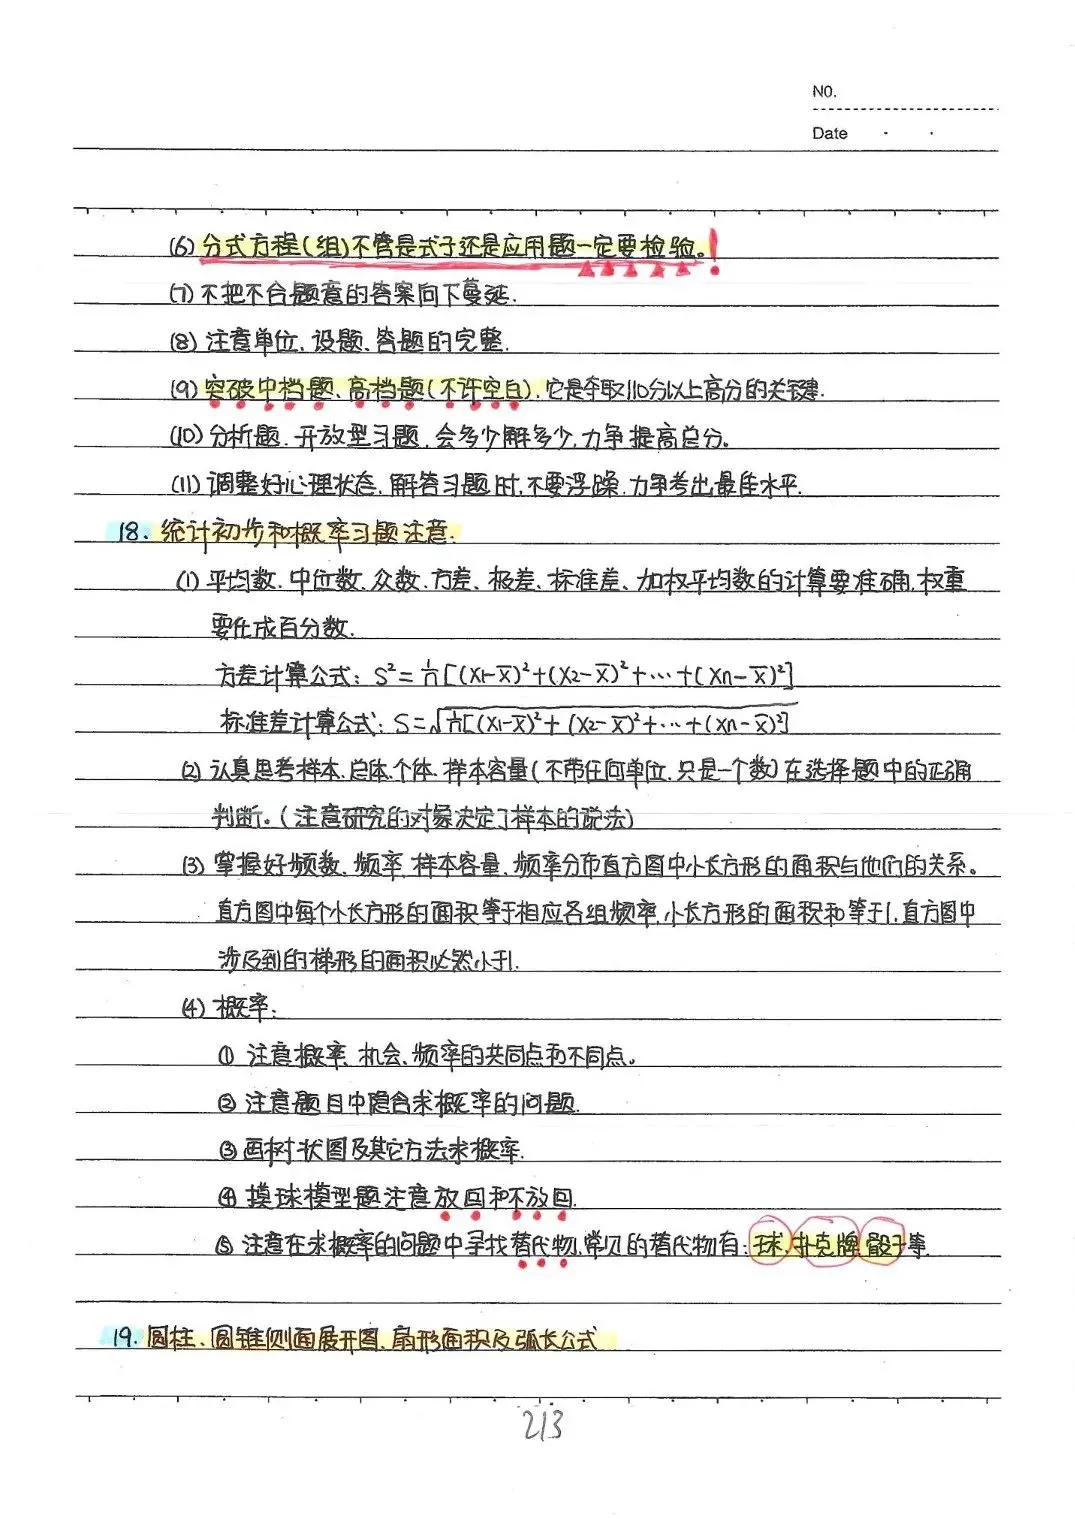 NO.
Date
(6) 分式方程(组)不管是式子还是应用题一定要检验。!
(7) 不把不合题意的答案向下蔓延.
(8) 注意单位、设题、答题的完整.
(9) 突破中档题、高档题(不许空白).它是夺取110分以上高分的关键.
(10) 分析题、开放型习题,会多少解多少,力争提高总分。
(11) 调整好心理状态,解答习题时,不要浮躁,力争考出最佳水平.
18. 统计初步和概率习题注意.
(1) 平均数、中位数、众数、方差、极差、标准差、加权平均数的计算要准确,权重
要化成百分数.
方差计算公式: S²=1/n[(x1-x̅)²+(x2-x̅)²+…+(xn-x̅)²]
标准差计算公式: S=√1/n[(x1-x̅)²+(x2-x̅)²+…+(xn-x̅)²]
(2) 认真思考样本、总体、个体、样本容量(不带任何单位,只是一个数)在选择题中的正确
判断。(注意研究的对象决定了样本的说法)
(3) 掌握好频数、频率、样本容量、频率分布直方图中小长方形的面积与他们的关系。
直方图中每个小长方形的面积等于相应各组频率,小长方形的面积和等于1,直方图中
涉及到的梯形的面积必然小于1.
(4) 概率:
① 注意概率、机会、频率的共同点和不同点。
② 注意题目中隐含求概率的问题.
③ 画树状图及其它方法求概率.
④ 摸球模型题注意放回和不放回.
⑤ 注意在求概率的问题中寻找替代物,常见的替代物有:球、扑克牌、骰子等.
19. 圆柱、圆锥侧面展开图、扇形面积及弧长公式
213